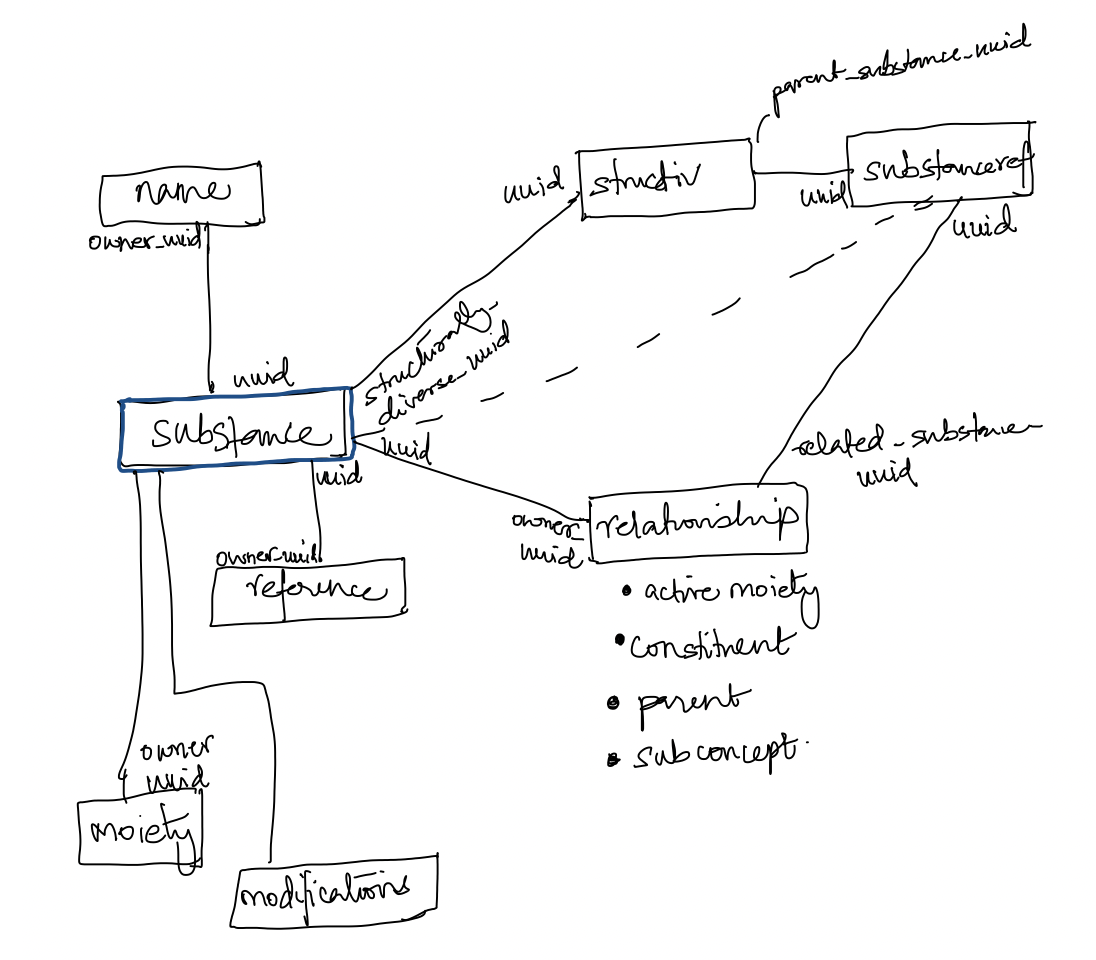 parent_substance_uuid
name
owner_uuid
uuid
structiv
substanceref
uuid
uuid
structurally_
diverse_uuid
uuid
substance
uuid
uuid
related_substance
uuid
owner_uuid
reference
owner_
uuid
relationship
• active moiety
• constituent
• parent
• subconcept.
owner
uuid
moiety
modifications